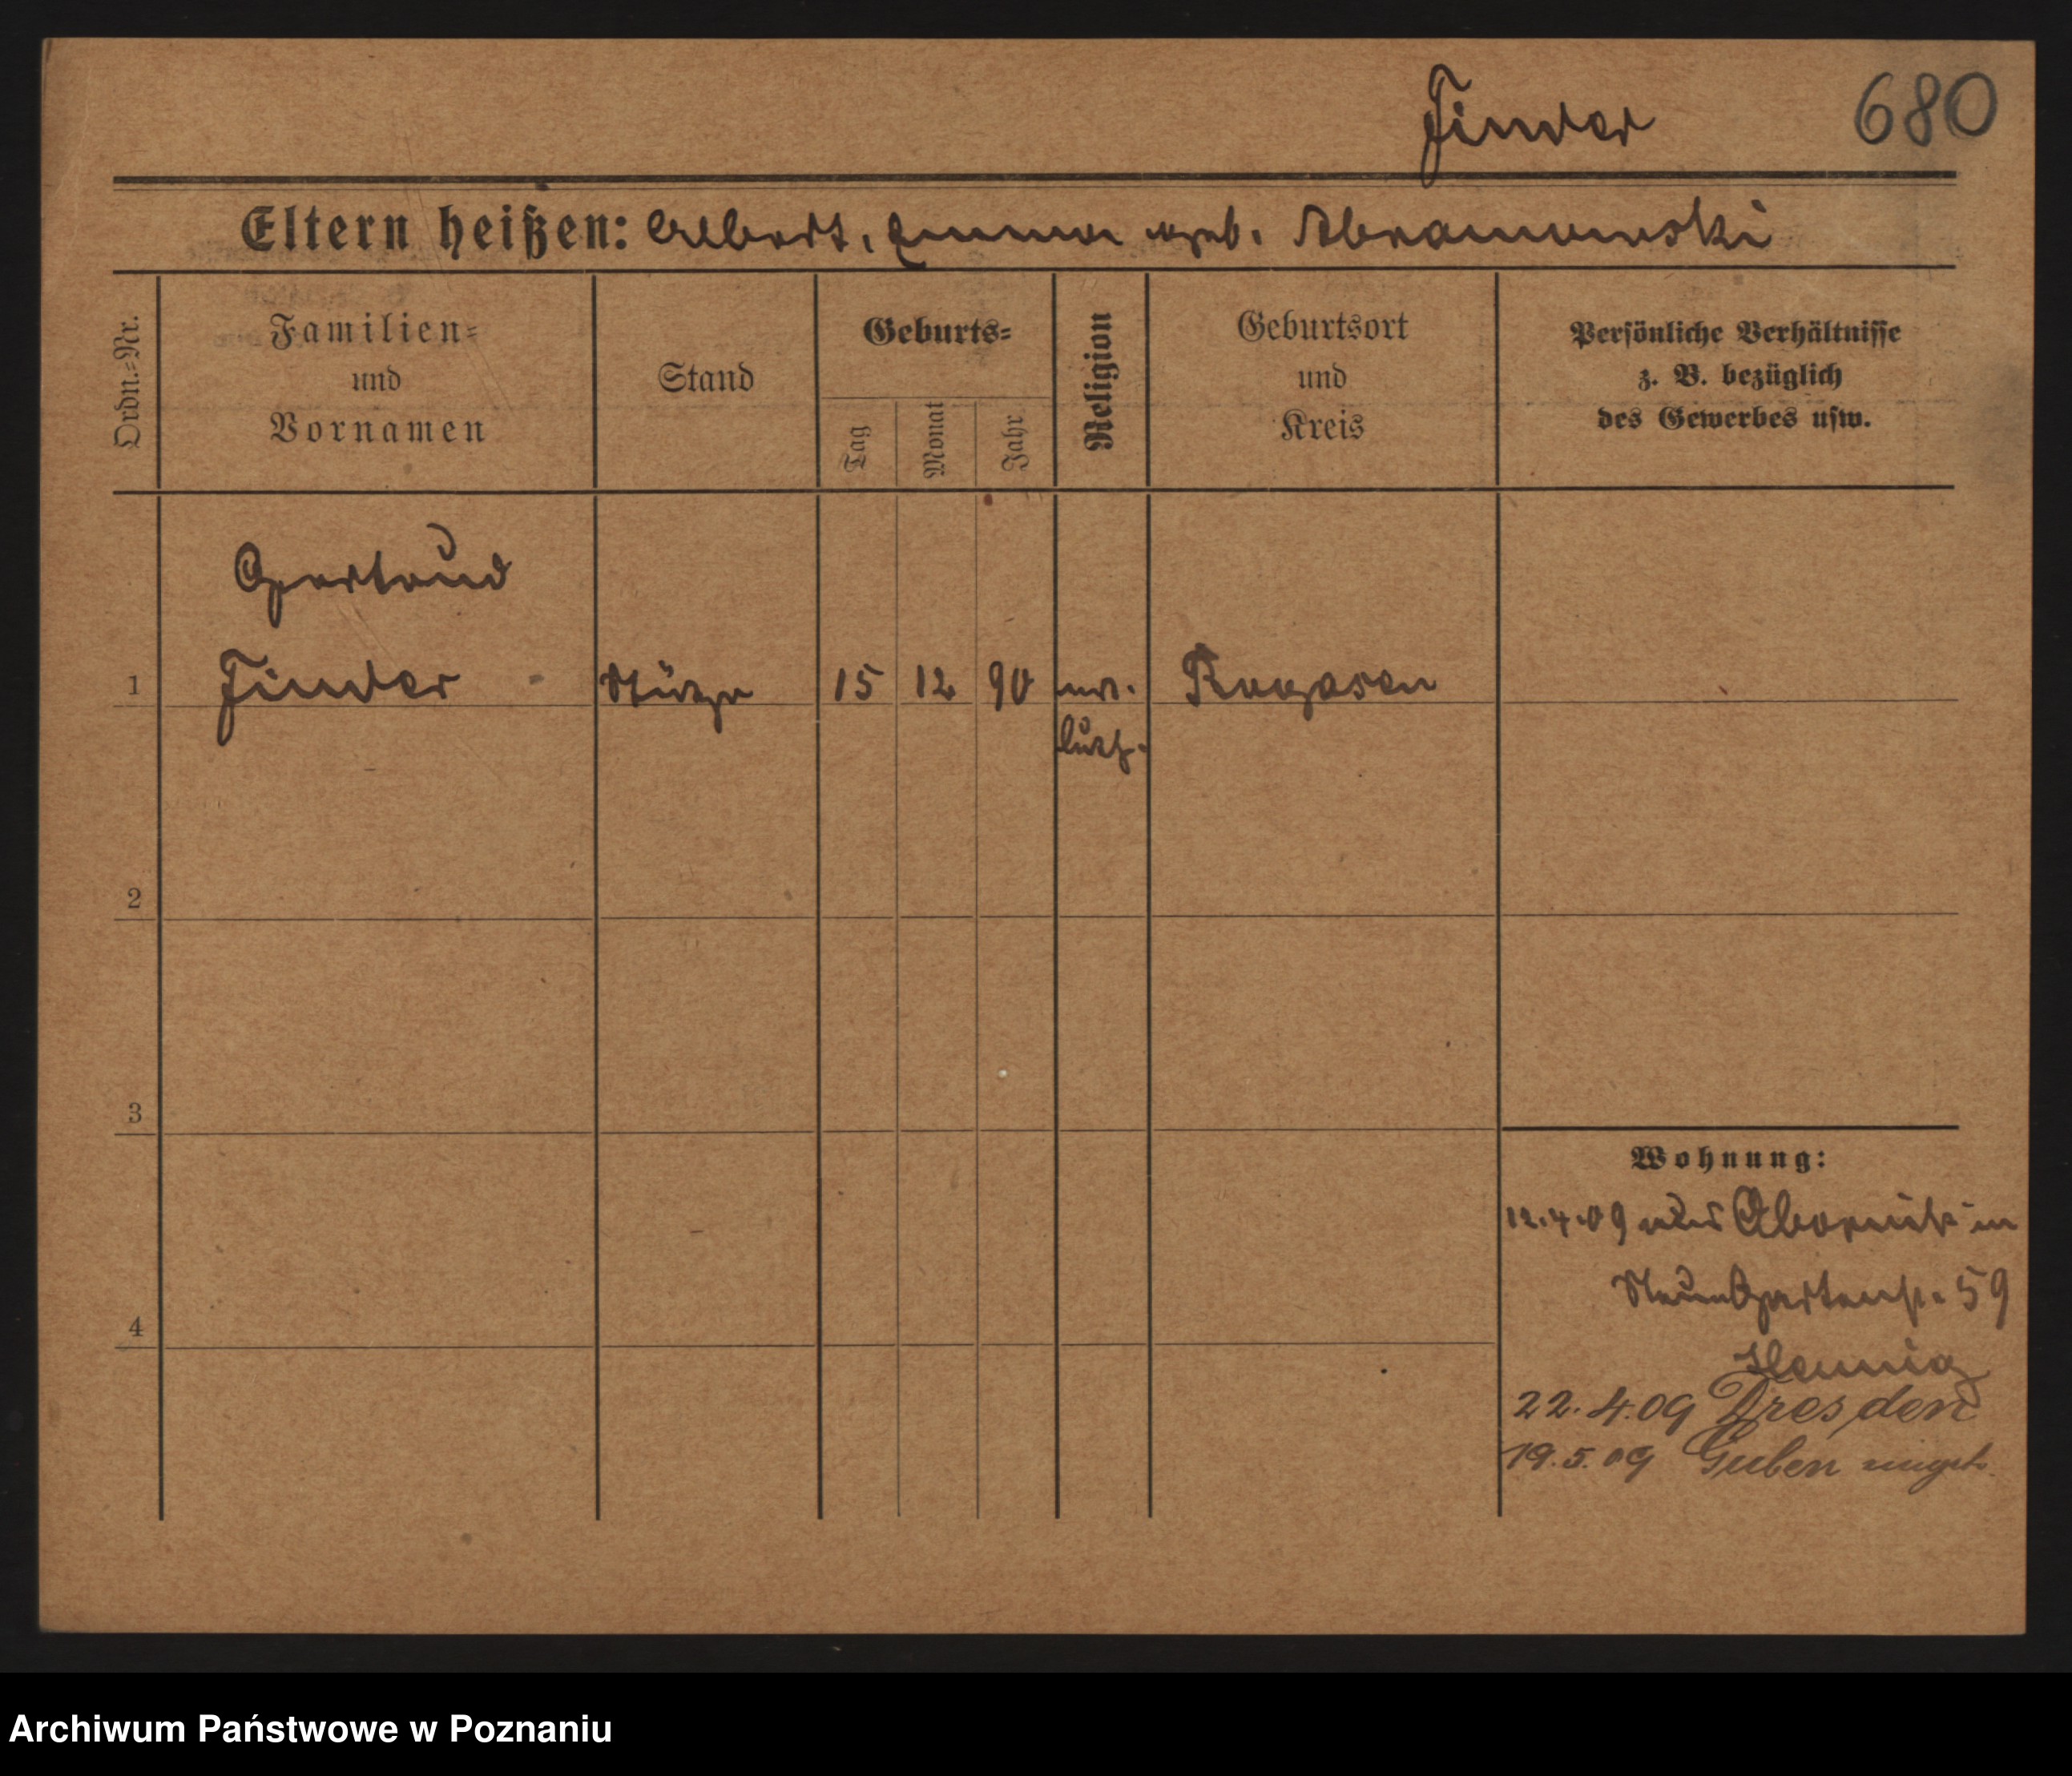 Finder 680
Eltern heißen: Albert, Emma geb. Abramowski
Ordn.=Nr.
Familien=
und
Vornamen
Stand
Geburts=
Tag
Monat
Jahr
Religion
Geburtsort
und
Kreis
Persönliche Verhältnisse
z. B. bezüglich
des Gewerbes usw.
Gertrud
1 Finder Stütze 15 12 90 ev. Rogasen
luth.
2
3
4
Wohnung:
12.4.09 aus Obornik in
Neue Gartenstr. 59
Hennig
22.4.09 Dresden
19.5.09 Guben
Archiwum Państwowe w Poznaniu